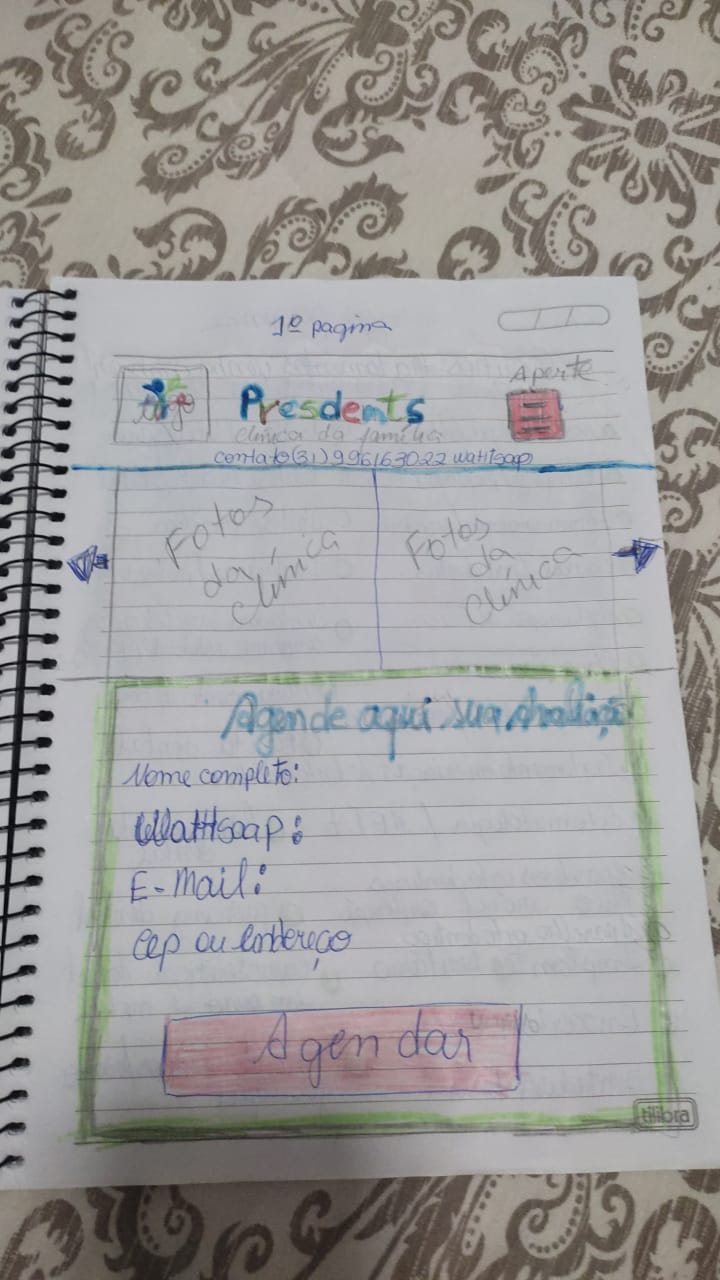 1º pagina
Aperte
Presdents
clínica da família
contato(31)996163022 wattsoap
Fotos
da
clínica
Fotos
da
Clínica
Agende aqui sua Avaliação
Nome completo:
Wattsoap:
E-Mail:
Cep ou endereço
Agendar
tilibra